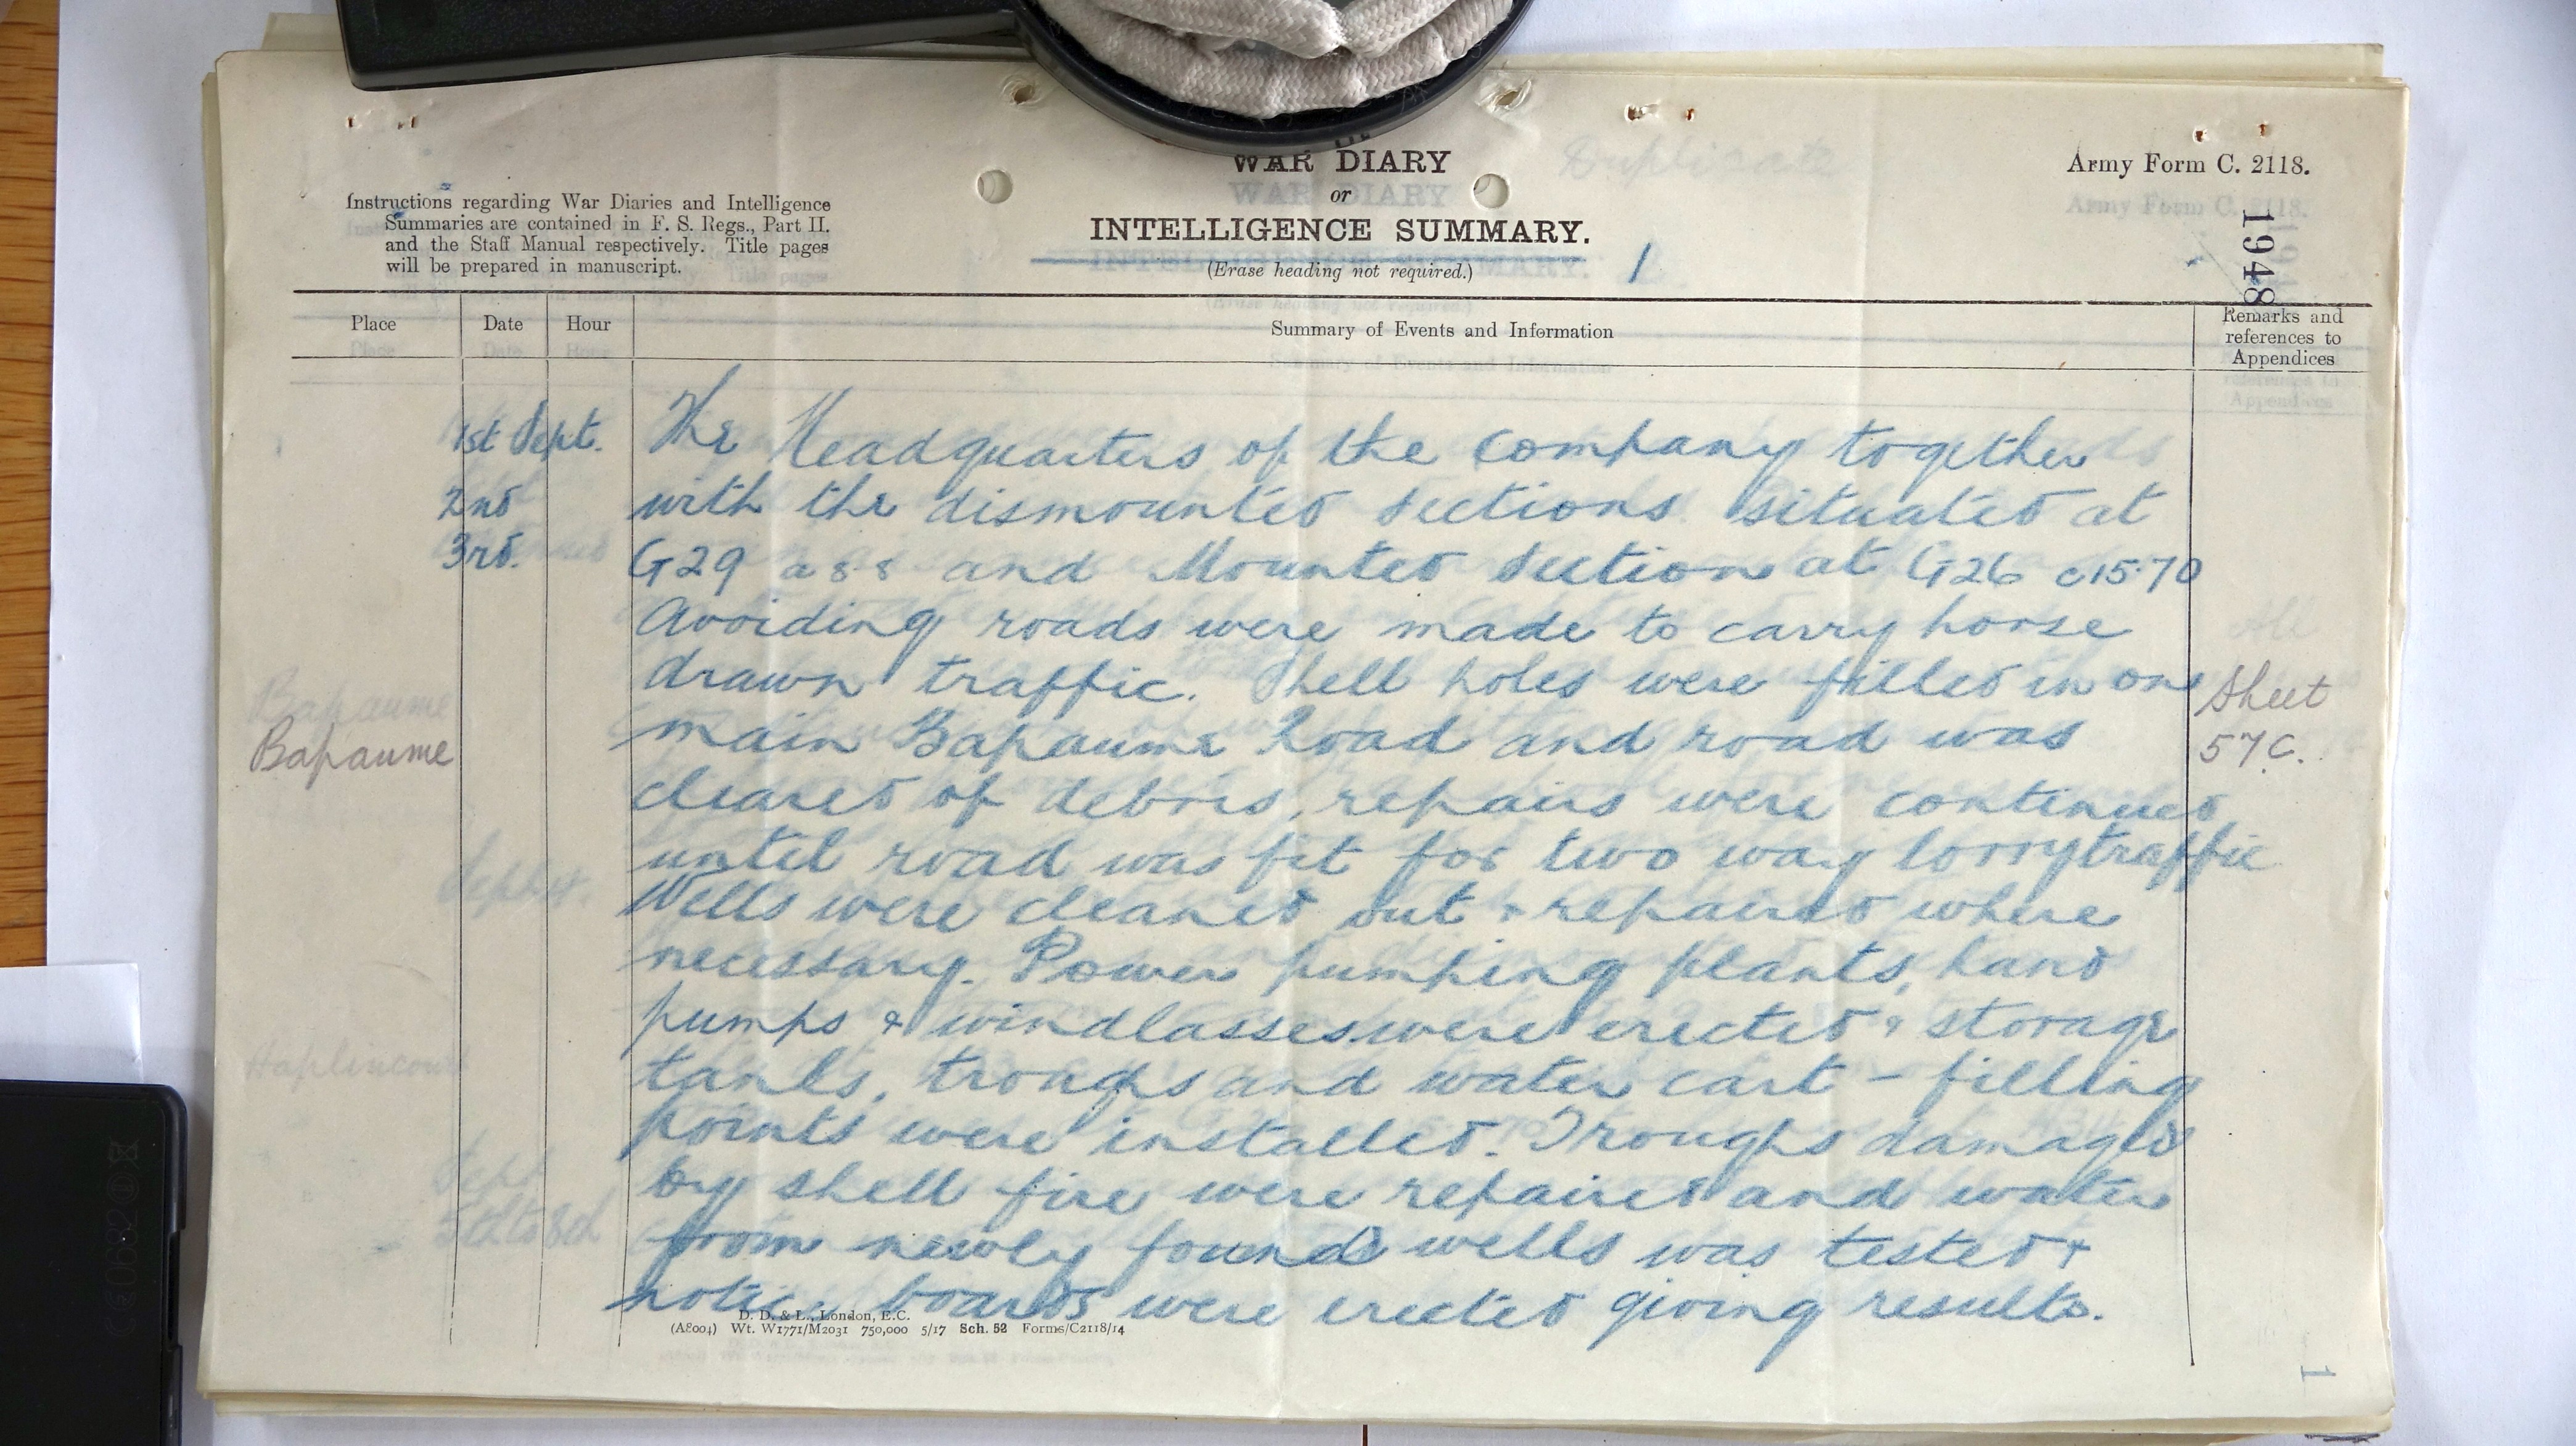 WAR DIARY
or
INTELLIGENCE SUMMARY.
(Erase heading not required.)
1
Army Form C. 2118.
1948
Instructions regarding War Diaries and Intelligence
Summaries are contained in F. S. Regs., Part II.
and the Staff Manual respectively. Title pages
will be prepared in manuscript.
Place Date Hour Summary of Events and Information Remarks and
references to
Appendices
1st Sept. The Headquarters of the Company together
2nd with the dismounted Sections situated at
3rd. G29 a 8.8 and Mounted Section at G26 c15.70
Avoiding roads were made to carry horse
drawn traffic. Shell holes were filled in one
Sheet
57C.
Bapaume
main Bapaume Road and road was
cleared of debris, repairs were continued
until road was fit for two way lorry traffic
Wells were cleaned out & repaired where
necessary. Power pumping plants, hand
pumps & windlasses were erected & storage
tanks, troughs and water cart - filling
points were installed. Troughs damaged
by shell fire were repaired and water
from newly found wells was tested &
notice boards were erected giving results.
D. D. & L., London, E.C.
(A8004) Wt. W1771/M2031 750,000 5/17 Sch. 52 Forms/C2118/14
1